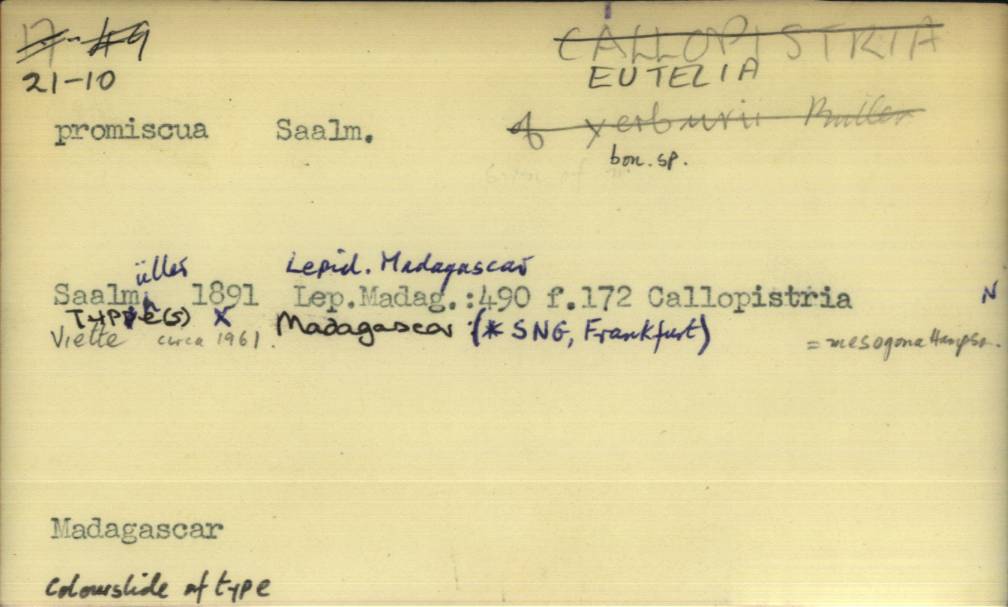 17-49 CALLOPISTRIA
21-10 EUTELIA
promiscua Saalm. of yerburii Butler
bon. sp.
üller Lepid. Madagascar
Saalm. 1891 Lep.Madag.:490 f.172 Callopistria N
Type(s) X Madagascar (* SNG, Frankfurt)
Viette circa 1961. = mesogona Hampson.
Madagascar
Colourslide of type